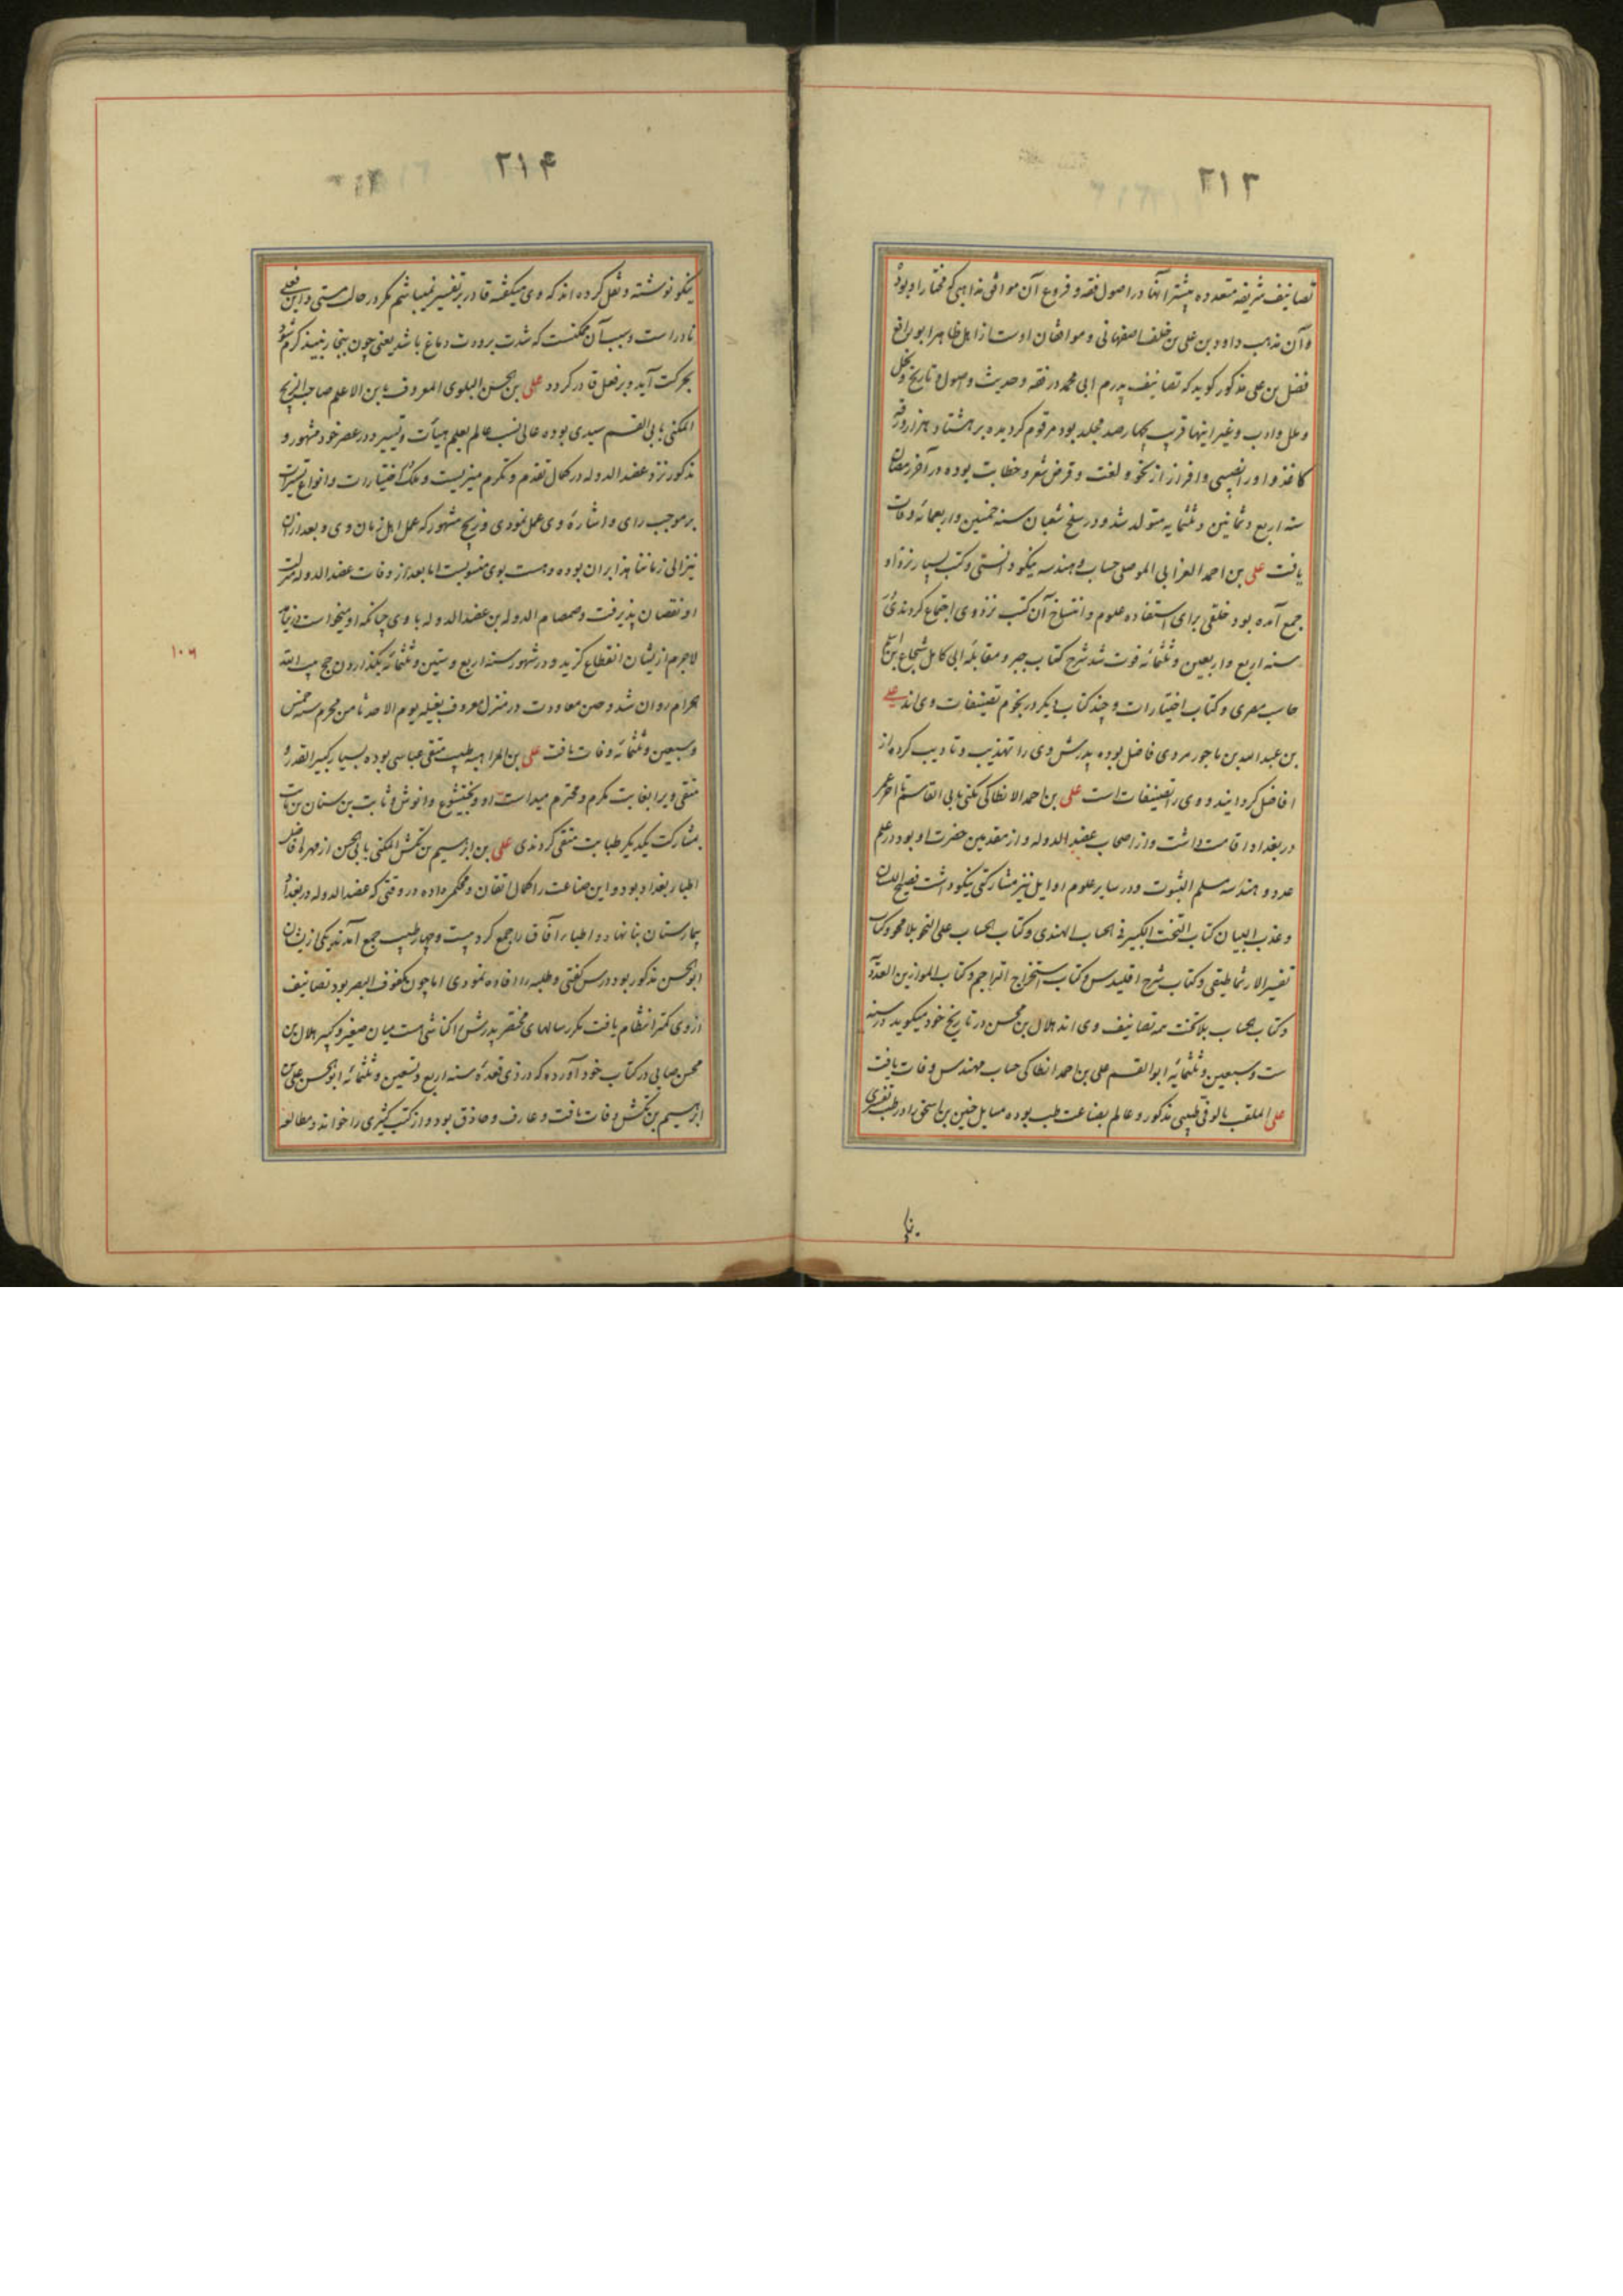 ٢١٣
تصانیف شریفه متعدده بیشتر آنها در اصول فقه و فروع آن موافق مذاهبی که مختار او بود
و آن مذهب داود بن علی بن خلف اصفهانی و موافقان اوست از اهل ظاهر ابو رافع
فضل بن علی مذکور کوید که تصانیف پدرم ابی محمد در فقه و حدیث و اصول و تاریخ و نحل
و ملل و ادب و غیر اینها قریب چهارصد مجلد بود مرقوم کردیده بر هشتاد هزار ورقه
کاغذ و اورا نصیبی وافر از نحو و لغت و قرض شعر و خطابت بوده در آخر رمضان
سنه اربع و ثمانین و ثلثمایه متولد شد و در سلخ شعبان سنه خمسین و اربعمائه وفات
یافت علی بن احمد العمرانی الموصلی حساب و هندسه نیکو دانستی و کتب بسیار نزد او
جمع آمده بود خلقی برای استفاده علوم و انتساخ آن کتب نزد وی اجتماع کردندی
سنه اربع و اربعین و ثلثمائه فوت شد شرح کتاب جبر و مقابله ابی کامل شجاع بن اسلم
حاسب مصری و کتاب اختیارات و چند کتاب دیکر در نجوم تصنیفات وی اند علی
بن عبد الله بن ماجور مردی فاضل بوده پدرش وی را تهذیب و تادیب کرده از
افاضل کردانید و وی را تصنیفات است علی بن احمد الانطاکی مکنی بابی القاسم تا آخر عمر
در بغداد اقامت داشت و از اصحاب عضد الدوله و از مقدمین حضرت او بود در علم
عدد و هندسه مسلم الثبوت و در سایر علوم اوایل نیز مشارکتی نیکو داشت فصیح اللسان
و عذب البیان کتاب التخت الکبیر فی الحساب الهندی و کتاب الحساب علی التخت بلا محو و کتاب
تفسیر الارثماطیقی و کتاب شرح اقلیدس و کتاب استخراج التراجم و کتاب الموازین العددیه
و کتاب الحساب بلا تخت همه تصانیف وی اند هلال بن محسن در تاریخ خود میکوید در سنه
ست و سبعین و ثلثمائه ابو القسم علی بن احمد انطاکی حساب مهندس وفات یافت
علی الملقب بالوفی طبیبی مذکور و عالم بصناعت طب بوده مسایل حنین بن اسحق را در طب تفسیری
٢١۴
نیکو نوشته و نقل کرده اند که وی میکفته قادر بر تفسیر نمیباشم مکر در حالت مستی و این فعلی
نادر است و سبب آن ممکنست که شدت برودت دماغ باشد یعنی چون ببخار نبیذ کرم شود
بحرکت آید و بر فعل قادر کردد علی بن الحسن العلوی المعروف بابن الاعلم صاحب الزیج
المکنی بابی القسم سیدی بوده عالی نسب عالم بعلم هیأت و تسییر و در عصر خود مشهور و
مذکور نزد عضد الدوله در کمال تقدم و تکرم میزیست و ملک اختیارات و انواع تسییرات
بر موجب رای و اشاره وی عمل نمودی و زیج مشهور که عمل اهل زمان وی و بعد از آن
نیز الی زماننا هذا بر آن بوده و هست بوی منسوبست اما بعد از وفات عضد الدوله منزلت
او نقصان پذیرفت و صمصام الدوله بن عضد الدوله با وی چنانکه او میخواست
لاجرم از یشان انقطاع کزید و در شهور سنه اربع و ستین و ثلثمائه بکذاردن حج بیت الله
الحرام روان شد و حین معاودت در منزل معروف بغیله یوم الاحد ثامن محرم سنه خمس
و سبعین و ثلثمائه وفات یافت علی بن الراهبه طبیب متقی عباسی بوده بسیار کبیر القدر و
متقی ویرا بغایت مکرم و محترم میداست او و بختیشوع و انوش و ثابت بن سنان بن ثابت
بمشارکت یکدیکر طبابت متقی کردندی علی بن ابرهیم بن بکش المکنی بابی الحسن از مهره افاضل
اطباء بغداد بود و این صناعت را کمال اتقان و محکمی داده در وقتی که عضد الدوله در بغداد
بیمارستان بنا نهاد و اطباء آفاق را جمع کرد بیست و چهار طبیب جمع آمدند یکی از یشان
ابو الحسن مذکور بود درس کفتی و طلبه را افاده نمودی اما چون مکفوف البصر بود تصانیف
از وی کمتر انتظام یافت مکر رسالهای مختصر پدرش را کناشی است میان صغیر و کبیر هلال بن
محسن صابی در کتاب خود آورده که در ذی قعده سنه اربع و تسعین و ثلثمائه ابو الحسن علی بن
ابرهیم بن بکش وفات یافت و عارف و حاذق بود و از کتب کثیری را خوانده و مطالعه
١٠٧